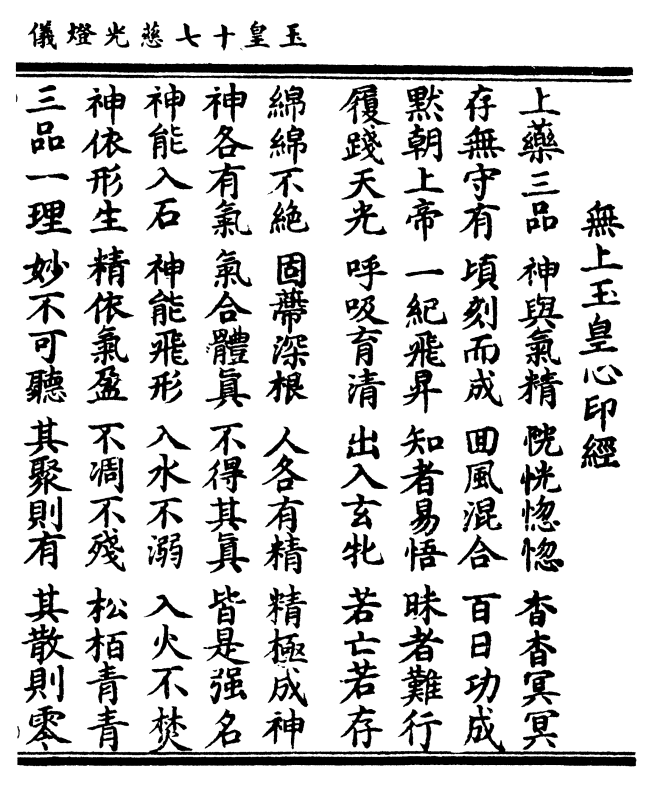 玉皇十七慈光燈儀
無上玉皇心印經
上藥三品 神與氣精 恍恍惚惚 杳杳冥冥
存無守有 頃刻而成 回風混合 百日功成
默朝上帝 一紀飛昇 知者易悟 昧者難行
履踐天光 呼吸育清 出入玄牝 若亡若存
綿綿不絶 固蔕深根 人各有精 精極成神
神各有氣 氣合體眞 不得其眞 皆是强名
神能入石 神能飛形 入水不溺 入火不焚
神依形生 精依氣盈 不凋不殘 松栢青青
三品一理 妙不可聽 其聚則有 其散則零